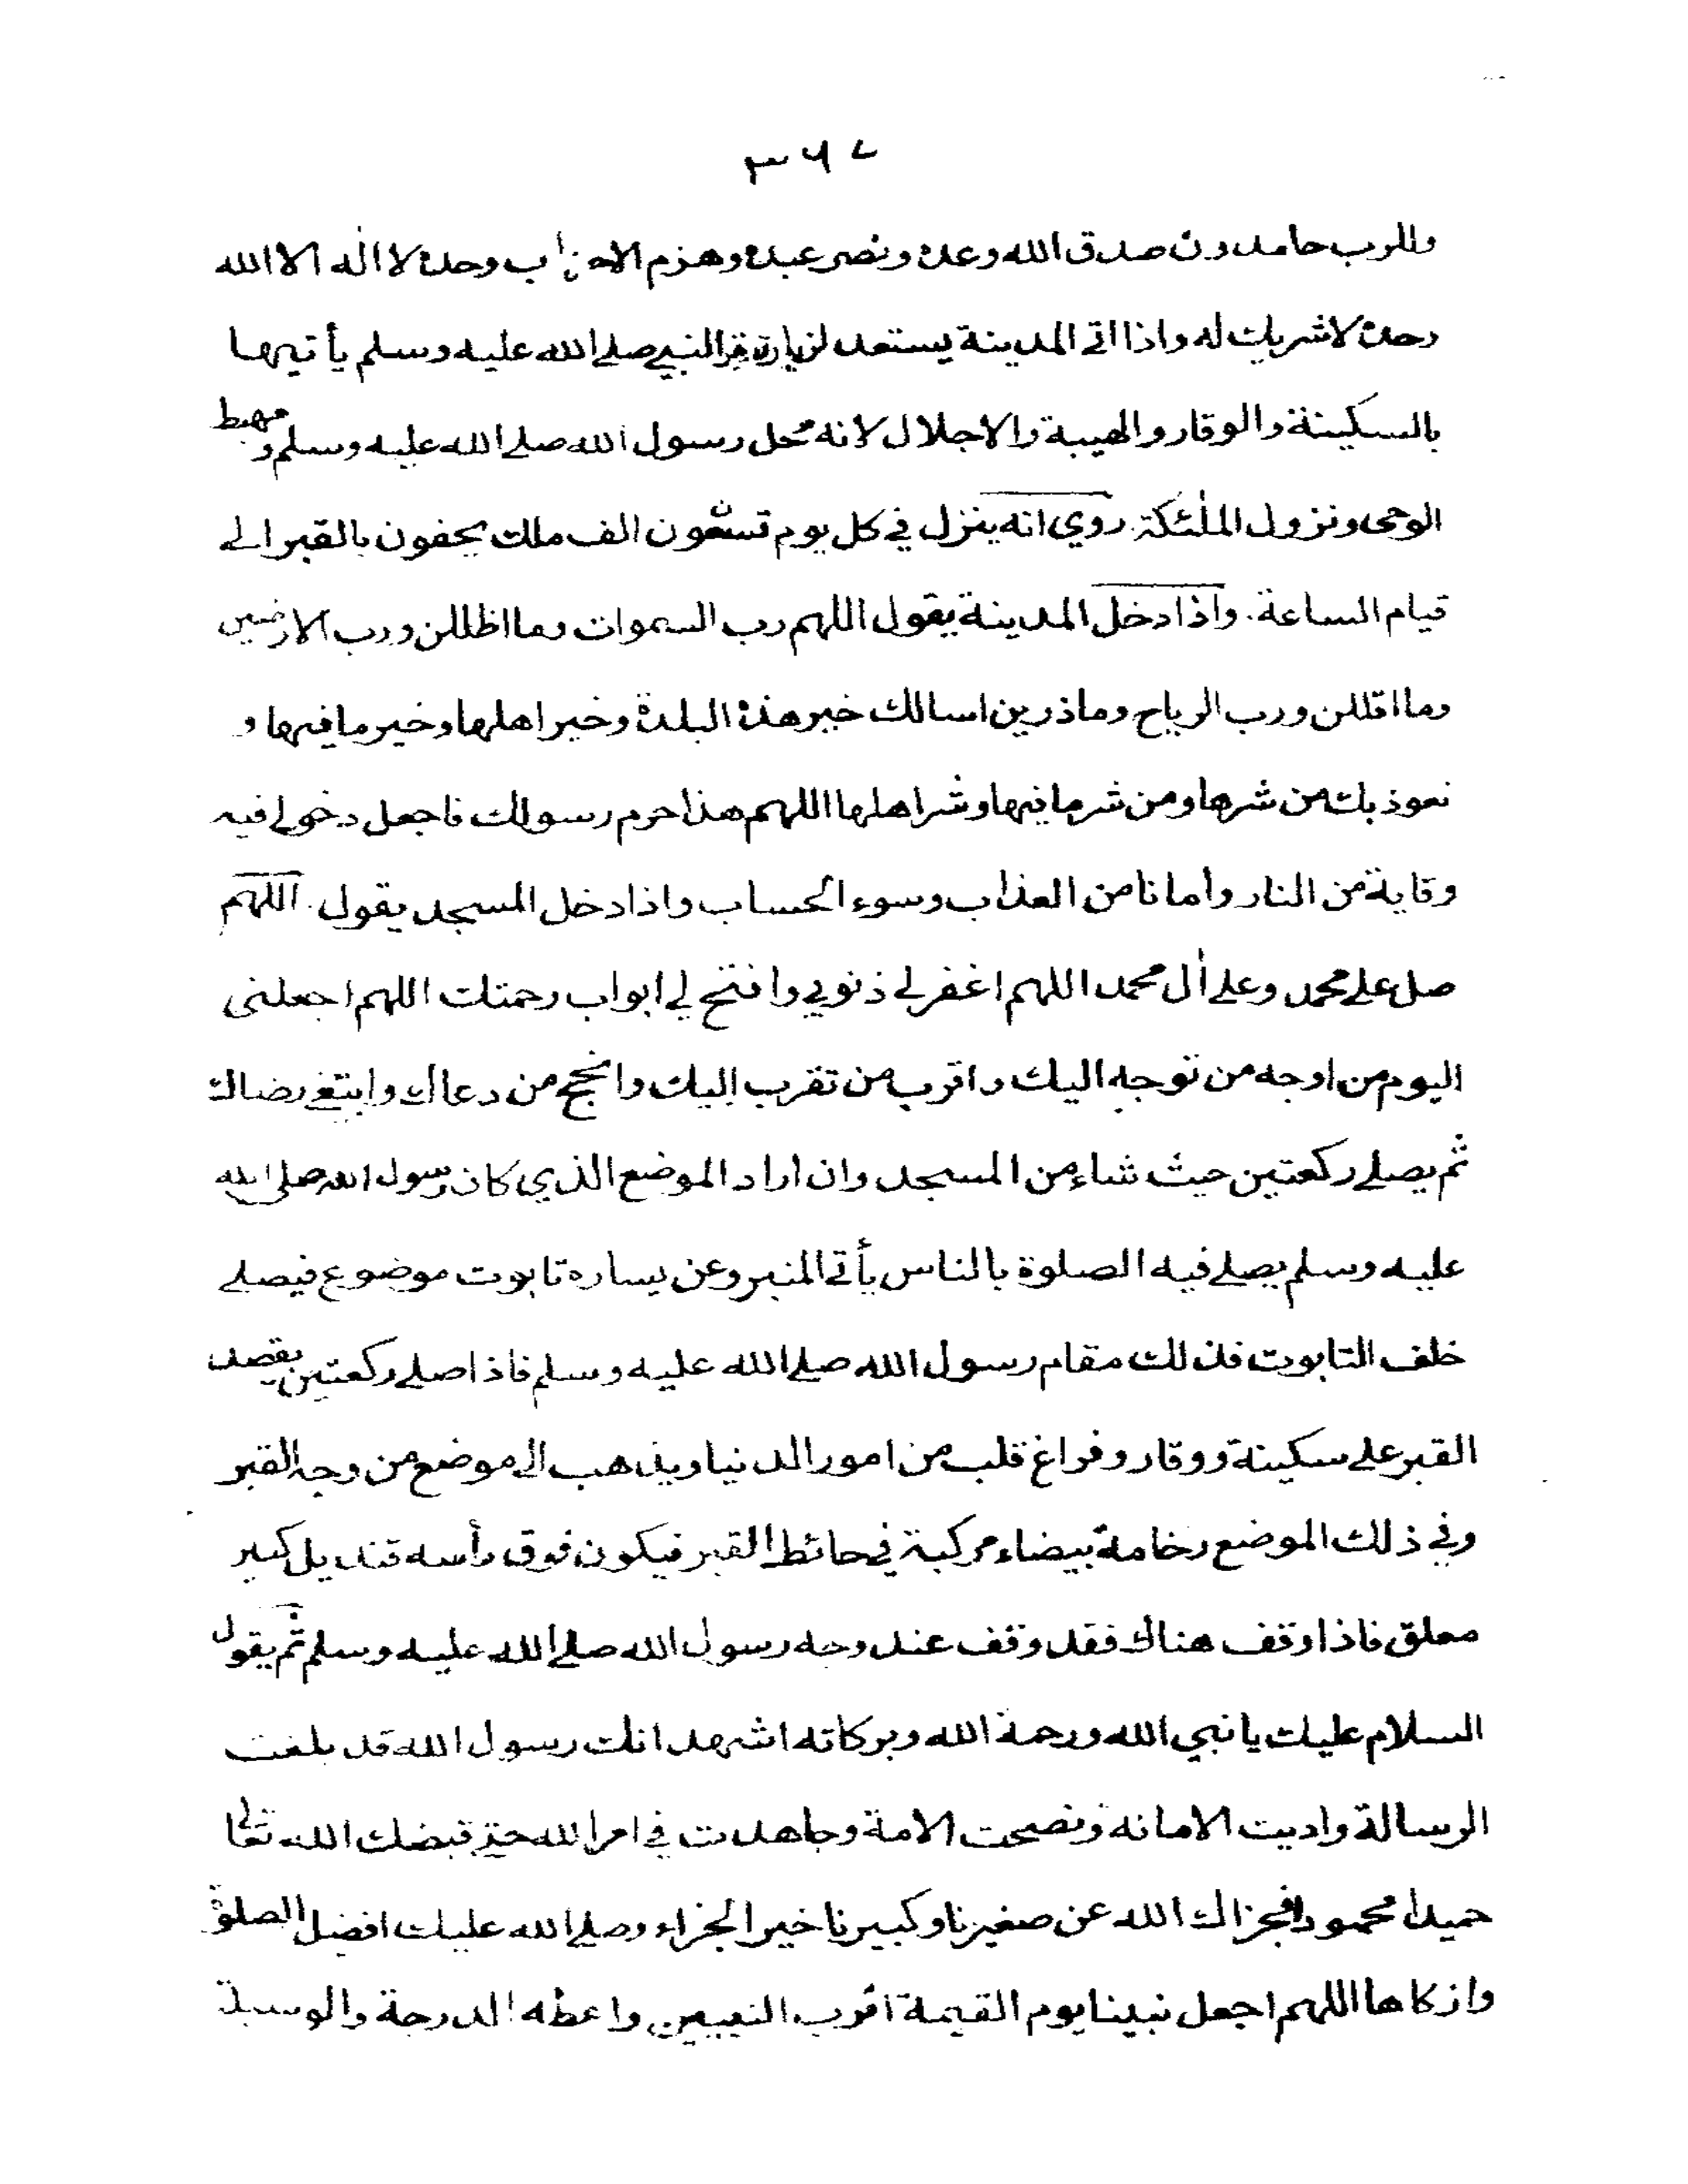 ٣٦٧
وللرب حامدون صدق الله وعده ونصر عبده وهزم الاحزاب وحده لا اله الا الله
وحده لا شريك له واذا اتى المدينة يستعد لزيارة قبر النبي صلے الله عليه وسلم يأتيها
بالسكينة والوقار والهيبة والاجلال لانه محل رسول الله صلے الله عليه وسلم ومهبط
الوحى ونزول الملٰئكة. روي انه ينزل في كل يوم تسعون الف ملك يحفون بالقبر الے
قيام الساعة. واذا دخل المدينة يقول اللهم رب السموات وما اظللن ورب الارضين
وما اقللن ورب الرياح وما ذرين اسالك خير هذه البلدة وخير اهلها وخير ما فيها و
نعوذ بك من شرها ومن شر ما فيها وشر اهلها اللهم هذا حرم رسولك فاجعل دخولے فيه
وقاية من النار وأمانا من العذاب وسوء الحساب واذا دخل المسجد يقول. اللهم
صل علے محمد وعلے اٰل محمد اللهم اغفر لے ذنوبي وافتح لي ابواب رحمتك اللهم اجعلنى
اليوم من اوجه من توجه اليك واقرب من تقرب اليك وانجح من دعاك وابتغے رضاك
ثم يصلے ركعتين حيث شاء من المسجد وان اراد الموضع الذي كان رسول الله صلے الله
عليه وسلم يصلے فيه الصلوة بالناس يأتے المنبر وعن يساره تابوت موضوع فيصلے
خلف التابوت فذلك مقام رسول الله صلے الله عليه وسلم فاذا صلے ركعتين يقصد
القبر علے سكينة ووقار وفراغ قلب من امور الدنيا ويذهب الے موضع من وجه القبر
وفي ذلك الموضع رخامة بيضاء مركبة في حائط القبر فيكون فوق رأسه قنديل كبير
معلق فاذا وقف هناك فقد وقف عند وجه رسول الله صلے الله عليه وسلم ثم يقول
السلام عليك يا نبي الله ورحمة الله وبركاته اشهد انك رسول الله قد بلغت
الرسالة واديت الامانة ونصحت الامة وجاهدت في امر الله حتے قبضك الله تعالے
حميدا محمودا فجزاك الله عن صغيرنا وكبيرنا خير الجزاء وصلے الله عليك افضل الصلوة
وازكاها اللهم اجعل نبينا يوم القيمة اقرب النبيين واعطه الدرجة والوسيلة